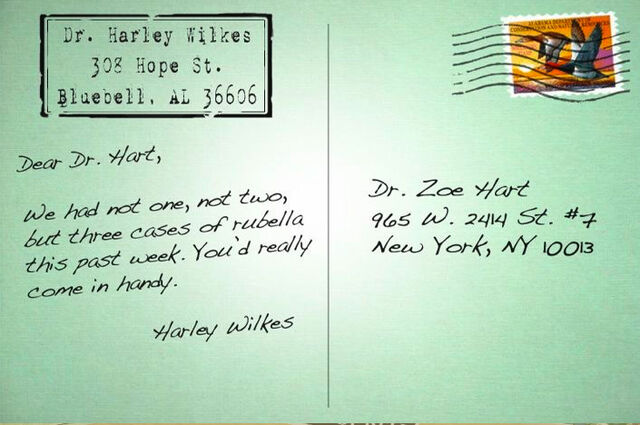 Dr. Harley Wilkes
308 Hope St.
Bluebell, AL 36606
Dear Dr. Hart,
We had not one, not two,
but three cases of rubella
this past week. You'd really
come in handy.
Harley Wilkes
ALABAMA DEPARTMENT
CONSERVATION AND NATURAL RESOURCES
Dr. Zoe Hart
965 W. 2414 St. #7
New York, NY 10013